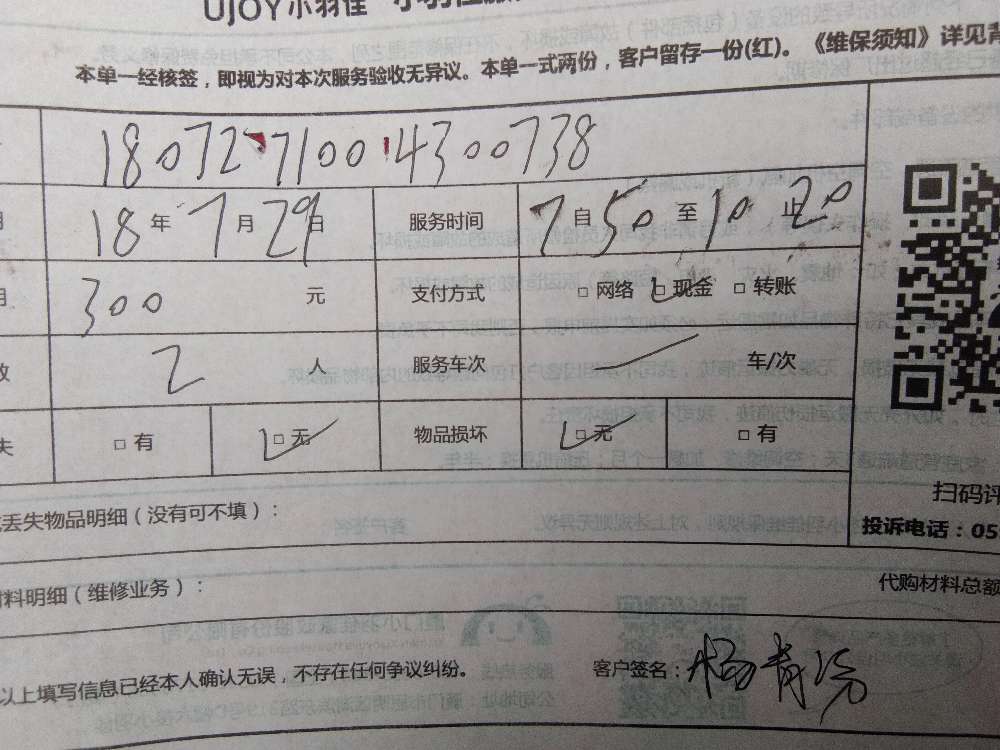 UJOY小羽佳
本单一经核签，即视为对本次服务验收无异议。本单一式两份，客户留存一份(红)。《维保须知》详见背
18072710014300738
18年7月29日 服务时间 7自50至10止20
300元 支付方式 □网络 □现金 □转账
2人 服务车次 车/次
□有 □无 物品损坏 □无 □有
扫码评
丢失物品明细（没有可不填）：
投诉电话：05
料明细（维修业务）：
代购材料总额
以上填写信息已经本人确认无误，不存在任何争议纠纷。 客户签名：杨青